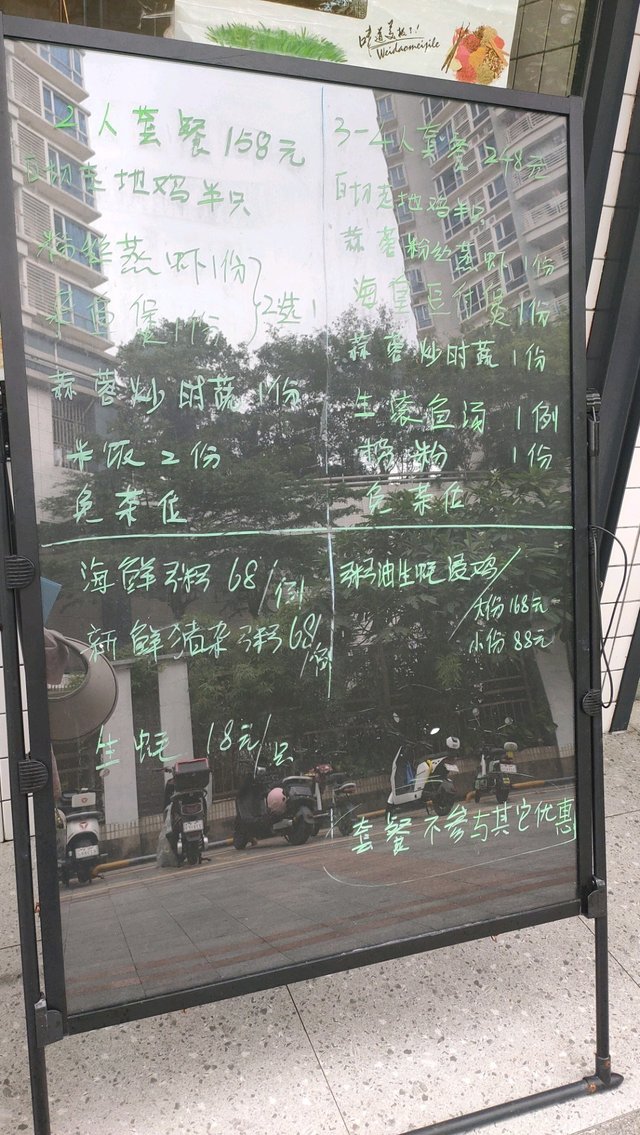 味道美极了!
Weidaomeijile
2人套餐158元
白切走地鸡半只
粉丝蒸虾1份
煲1份
2选1
蒜蓉炒时蔬1份
卡饭2份
免茶位
3-4人套餐248元
白切走地鸡半只
蒜蓉粉丝蒸虾1份
海皇豆付煲1份
蒜蓉炒时蔬1份
生滚鱼汤1例
粉1份
免茶位
海鲜粥68/例
新鲜猪杂粥68/例
生蚝18元/只
生蚝
大份168元
小份88元
套餐不参与其它优惠